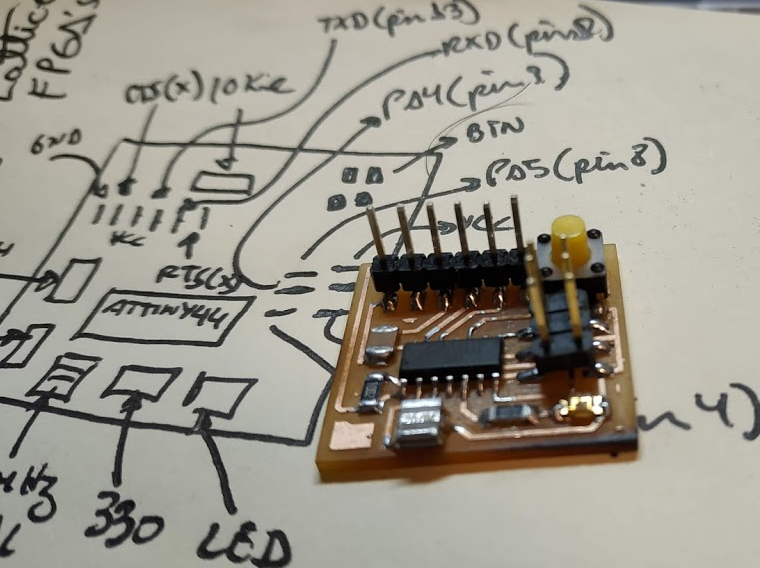 Lattice
FPGA's
TXD(pin13)
RXD(pin8)
CTS(x)
10K
PA4(pin
BTN
GND
PA5(pin8)
VCC
VCC
RTS(x)
ATTINY44
n4)
330
LED